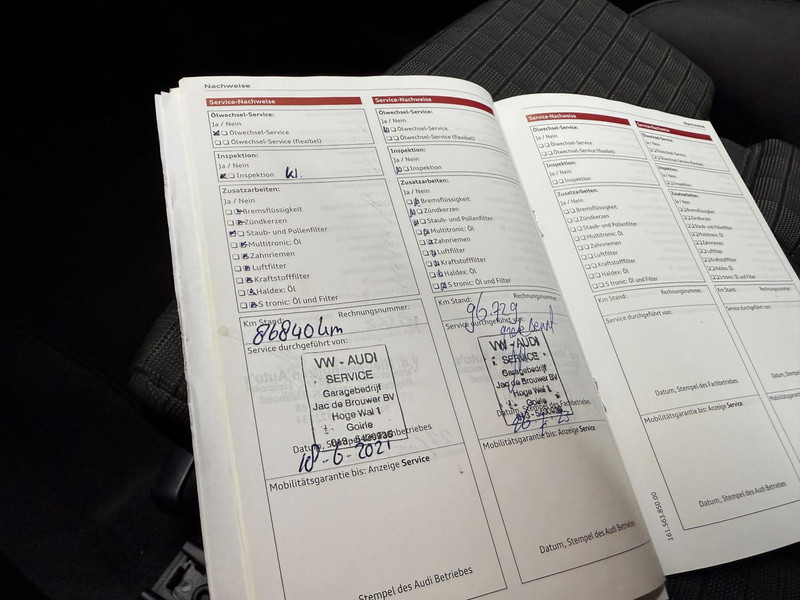 Nachweise
Service-Nachweise
Ölwechsel-Service:
Ja / Nein
Ölwechsel-Service
Ölwechsel-Service (flexibel)
Inspektion:
Ja / Nein
Inspektion kl.
Zusatzarbeiten:
Ja / Nein
Bremsflüssigkeit
Zündkerzen
Staub- und Pollenfilter
Multitronic: Öl
Zahnriemen
Luftfilter
Kraftstofffilter
Haldex: Öl
S tronic: Öl und Filter
Km Stand: Rechnungsnummer:
86840 km
Service durchgeführt von:
VW - AUDI
SERVICE
Garagebedrijf
Jac de Brouwer BV
Hoge Wal 1
Goirle
Datum, Stempel des Fachbetriebes
18-6-2021
Mobilitätsgarantie bis: Anzeige Service
Datum, Stempel des Audi Betriebes
Service-Nachweise
Ölwechsel-Service:
Ja / Nein
Ölwechsel-Service
Ölwechsel-Service (flexibel)
Inspektion:
Ja / Nein
Inspektion
Zusatzarbeiten:
Ja / Nein
Bremsflüssigkeit
Zündkerzen
Staub- und Pollenfilter
Multitronic: Öl
Zahnriemen
Luftfilter
Kraftstofffilter
Haldex: Öl
S tronic: Öl und Filter
Km Stand: Rechnungsnummer:
96.729
Service durchgeführt von:
VW - AUDI
SERVICE
Garagebedrijf
Jac de Brouwer BV
Hoge Wal 1
Goirle
Datum, Stempel des Fachbetriebes
Mobilitätsgarantie bis: Anzeige Service
Datum, Stempel des Audi Betriebes
Service-Nachweise
Ölwechsel-Service:
Ja / Nein
Ölwechsel-Service
Ölwechsel-Service (flexibel)
Inspektion:
Ja / Nein
Inspektion
Zusatzarbeiten:
Ja / Nein
Bremsflüssigkeit
Zündkerzen
Staub- und Pollenfilter
Multitronic: Öl
Zahnriemen
Luftfilter
Kraftstofffilter
Haldex: Öl
S tronic: Öl und Filter
Km Stand: Rechnungsnummer:
Service durchgeführt von:
Datum, Stempel des Fachbetriebes
Mobilitätsgarantie bis: Anzeige Service
Datum, Stempel des Audi Betriebes
161.563.850.00
Nachweise
Service-Nachweise
Ölwechsel-Service:
Ja / Nein
Ölwechsel-Service
Ölwechsel-Service (flexibel)
Inspektion:
Ja / Nein
Inspektion
Zusatzarbeiten:
Ja / Nein
Bremsflüssigkeit
Zündkerzen
Staub- und Pollenfilter
Multitronic: Öl
Zahnriemen
Luftfilter
Kraftstofffilter
Haldex: Öl
S tronic: Öl und Filter
Km Stand:
Service durchgeführt von:
Datum, Stempel
Mobilitätsgarantie
Datum,